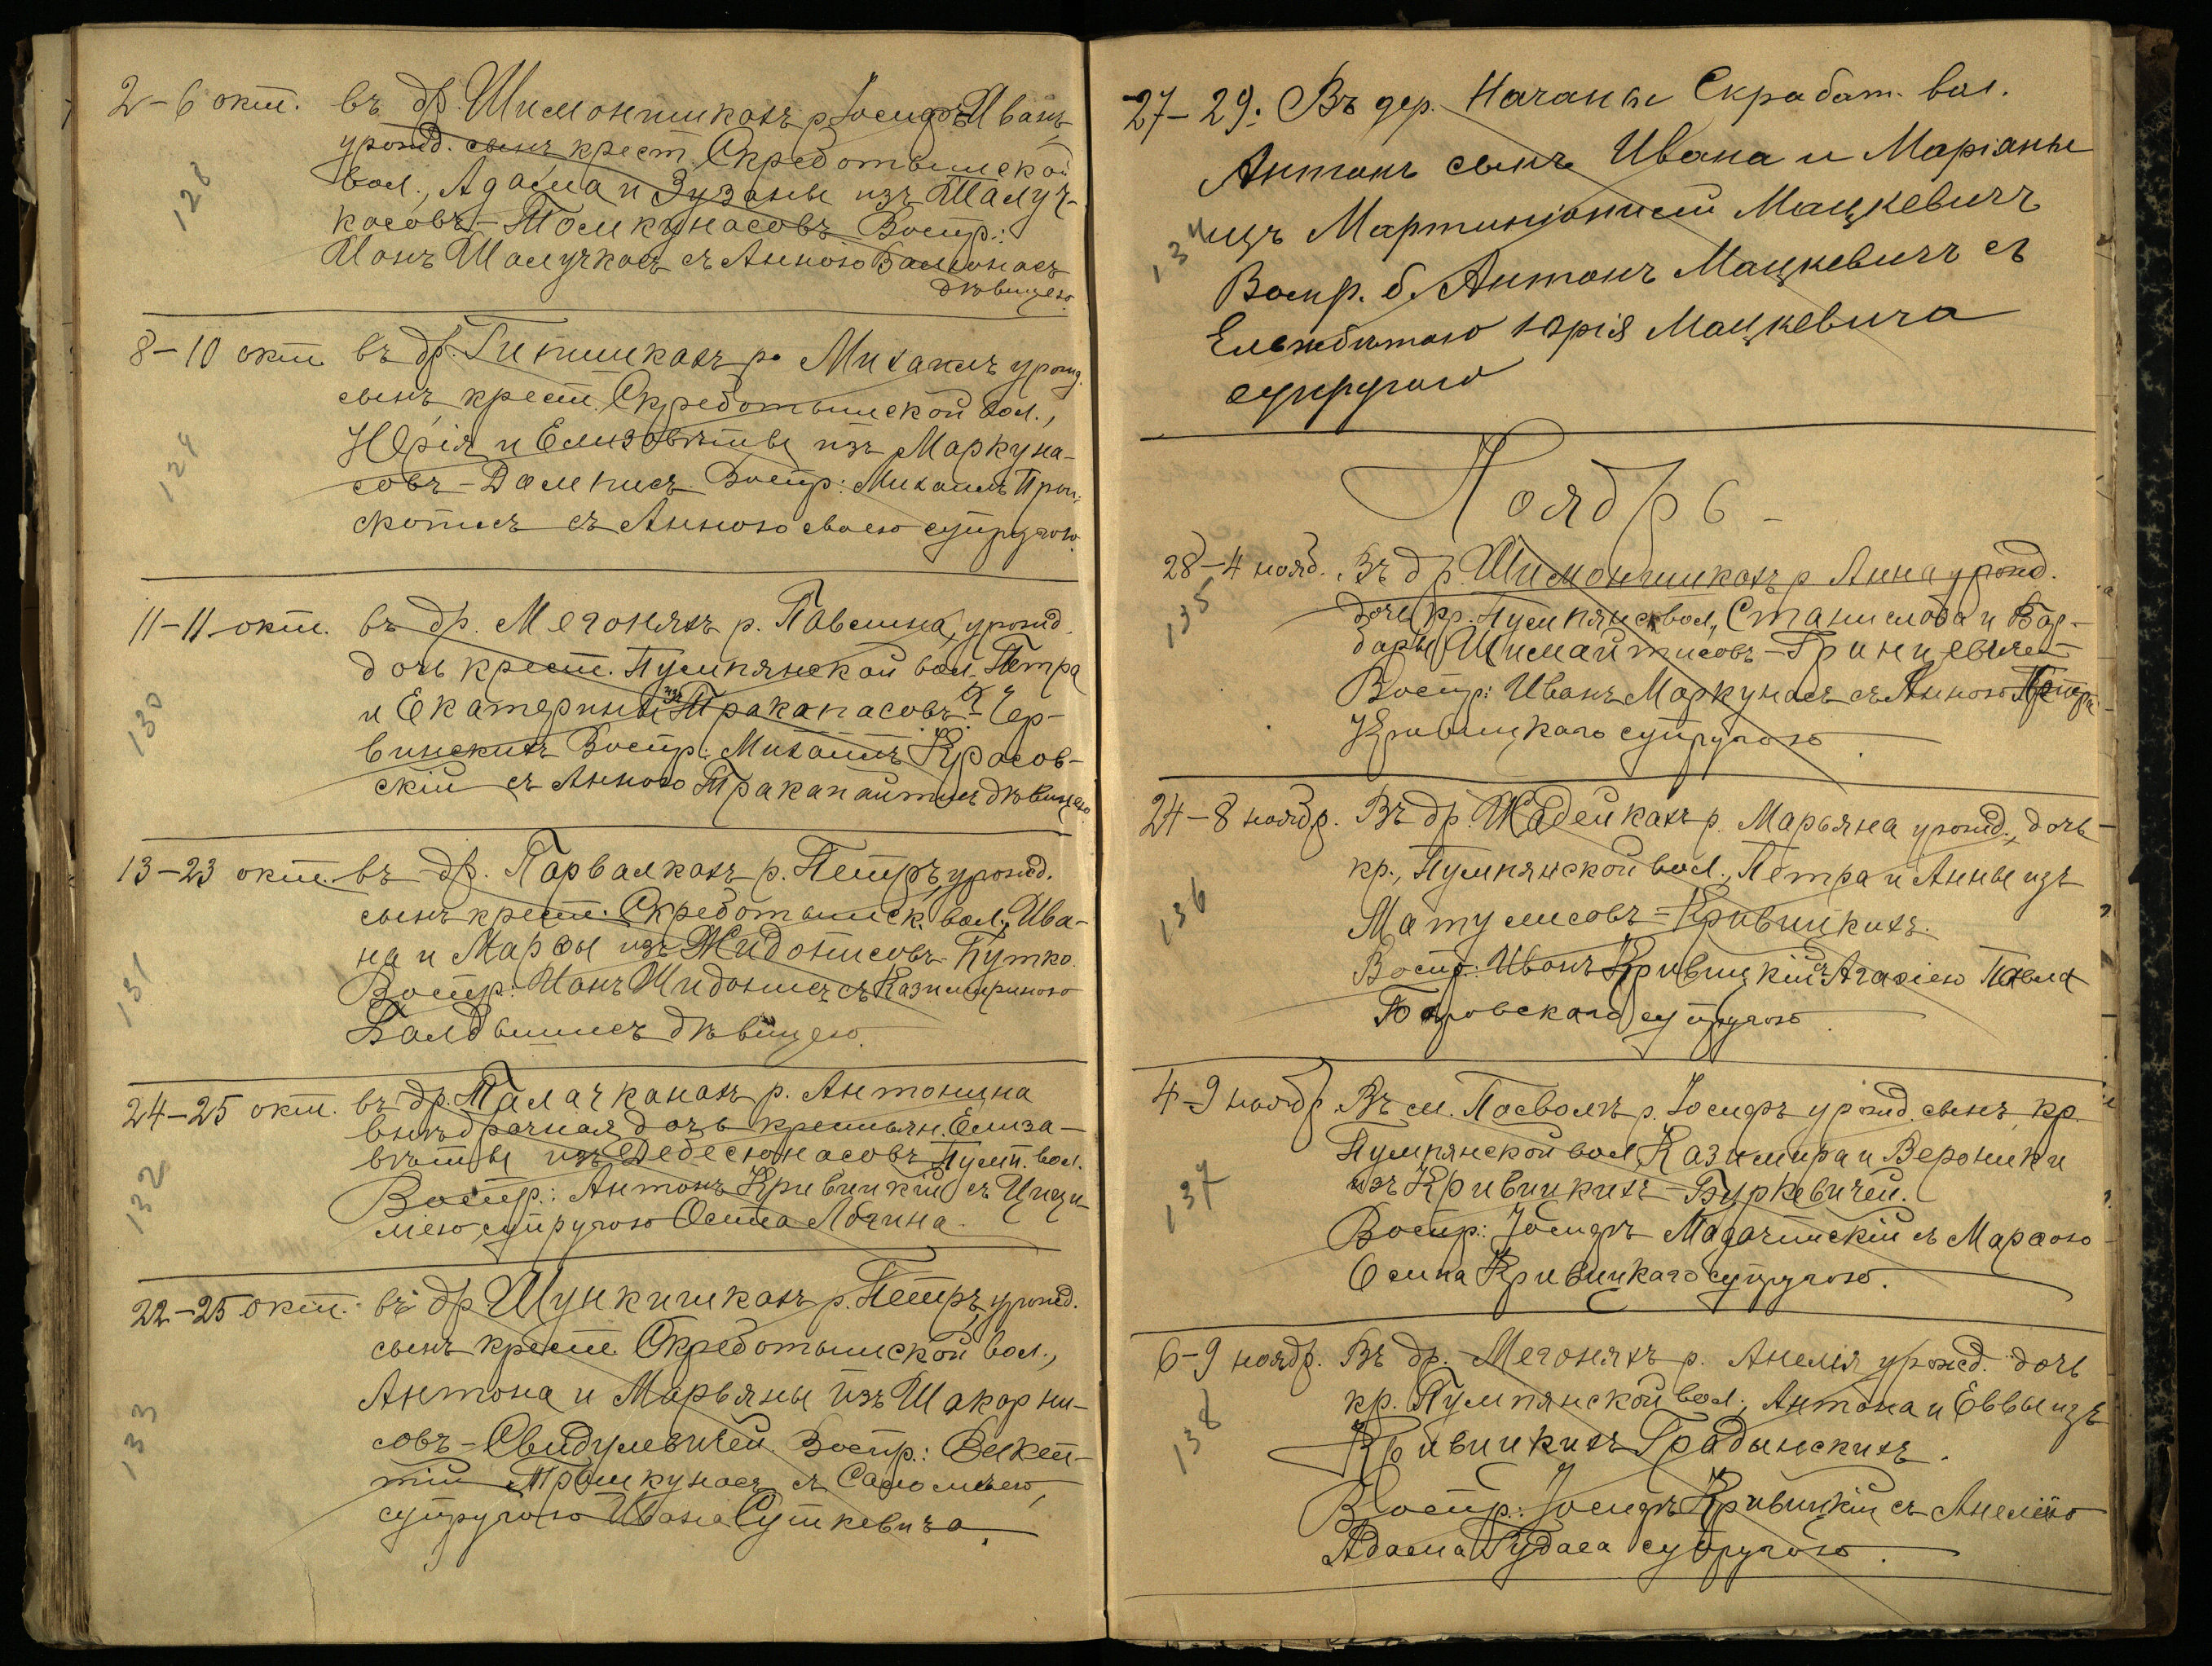 2–6 окт. въ др. Шимонишкахъ р. Іосифъ Иванъ
урожд. сынъ крест. Скреботышской
128
вол., Адама и Зузаны изъ Шалуч-
касовъ – Томкунасовъ Воспр.:
Иванъ Шалучкасъ съ Анною
дѣвицею.
8–10 окт. въ др. р. Михаилъ урожд.
сынъ крест. Скреботышской вол.,
129
Юрія и Елизаветы изъ Маркуна-
совъ – Воспр: Михаилъ
съ Анною своею супругою.
11–11 окт. въ др. Мегоняхъ р. Павлина, урожд.
дочь крест. Пумпянской вол. Петра
130
и Екатерины изъ Тракапасовъ – Чер-
винскихъ Воспр: Михаилъ Красов-
скій съ Анною Тракапайтисъ дѣвицею.
13–23 окт. въ др. Парвалкахъ р. Петръ, урожд.
сынъ крест. Скреботышск. вол., Ива-
на и Марѳы изъ Жидонисовъ – Путко.
131
Воспр: Иванъ Шидонисъ съ Казимириною
Балдышисъ дѣвицею.
24–25 окт. въ др. Талачканахъ р. Антонина
внѣбрачная дочь крестьян. Елиза-
132
вѣты изъ Дебесюнасовъ Пумп. вол.
Воспр.: Антонъ Кривицкій съ Цици-
ліею супругою Осипа
22–25 окт. въ др. Шункишкахъ р. Петръ, урожд.
сынъ крест. Скреботышской вол.,
133
Антона и Марьяны изъ Шакарни-
совъ – Свидулевичей. Воспр.: Викен-
тій Трашкунасъ съ Саломеею,
супругою Ивана Сушкевича.
27–29. Въ дер. Начаны Скрабат. вол.
Антонъ сынъ Ивана и Маріаны
134
изъ Мацкевичъ
Воспр. б. Антонъ Мацкевичъ съ
Ельжбетою Юрія Мацкевича
супругою
Ноябрь –
28–4 нояб. Въ др. Шимонишкахъ р Анна урожд.
135
дочь кр. Пумпянск вол, Станислава и Вар-
бары Шимайтисовъ – Гриницевичей
Воспр: Иванъ Маркунасъ съ Анною Петра
Кривицкаго супругою.
24–8 ноябр. Въ др. Жадейкахъ р. Марьяна урожд., дочь
кр., Пумпянской вол., Петра и Анны изъ
136
Матулисовъ – Кривицкихъ.
Воспр: Иванъ Кривицкій съ Агаѳіею Павла
супругою.
4–9 ноябр Въ м. Посволѣ р. Іосифъ урожд. сынъ, кр.
Пумпянской вол, Казимира и Вероники
137
изъ Кривицкихъ – Буркевичей.
Воспр: Іосифъ съ Марѳою
Осипа Кривицкаго супругою.
6–9 ноябр. Въ др. Мегоняхъ р. Анелія урожд. дочь
кр. Пумпянской вол., Антона и Еввы изъ
138
Кривицкихъ Градынскихъ.
Воспр: Іосифъ Кривицкій съ Анеліею
Адама Гудаса супругою.